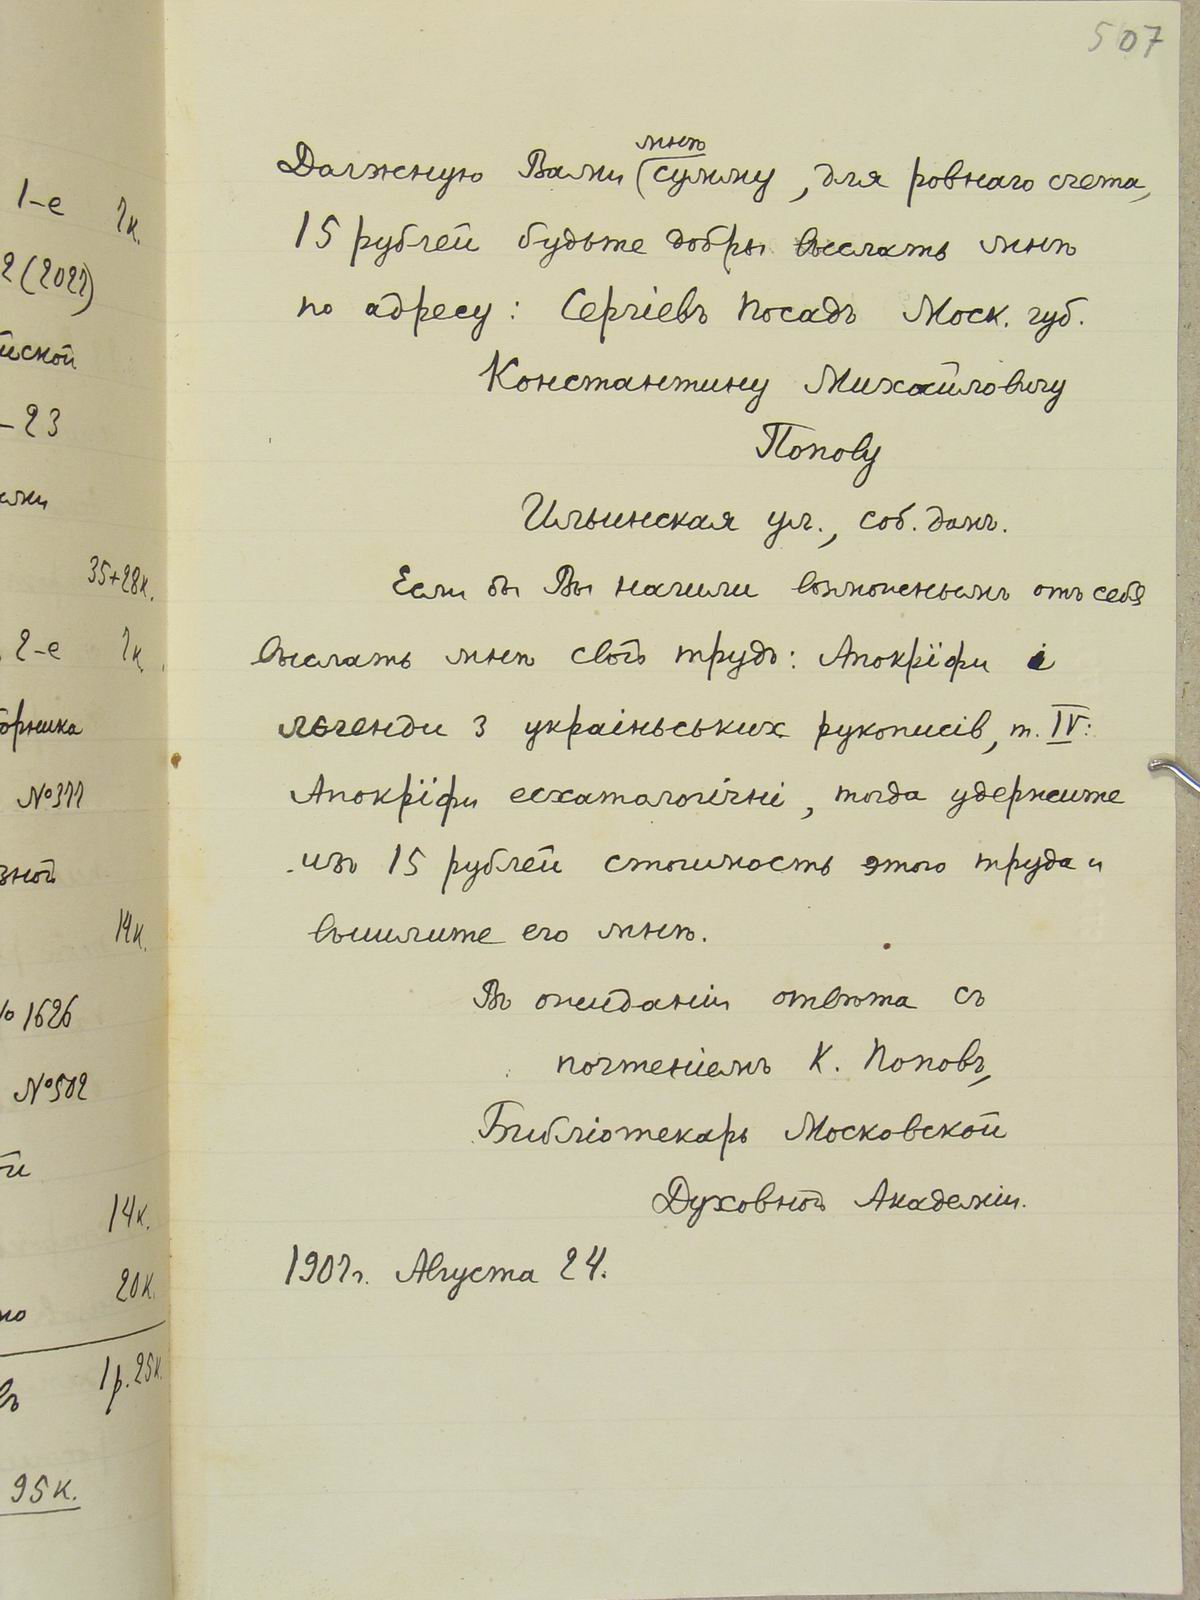 507
Должную Вами мнѣ сумму, для ровнаго счета,
15 рублей будьте добры выслать мнѣ
по адресу: Сергіевъ Посадъ Моск. губ.
Константину Михайловичу
Попову
Ильинская ул., соб. домъ.
Если бы Вы нашли возможнымъ отъ себя
выслать мнѣ свой трудъ: Апокрїфи і
лєгенди з украіньських рукописів, т. IV:
Апокрїфи есхатологічні, тогда удержите
изъ 15 рублей стоимость этого труда и
вышлите его мнѣ.
Въ ожиданіи отвѣта съ
почтеніемъ К. Поповъ,
Библіотекарь Московской
Духовной Академіи.
1907г. Августа 24.
1-е 7к.
2 (2027)
йской
-23
ями
35+28к.
2-е 7к.
борника
№377
зной
14к.
№ 1626
№502
ой
14к.
20к.
но
1р.25к.
въ
95к.